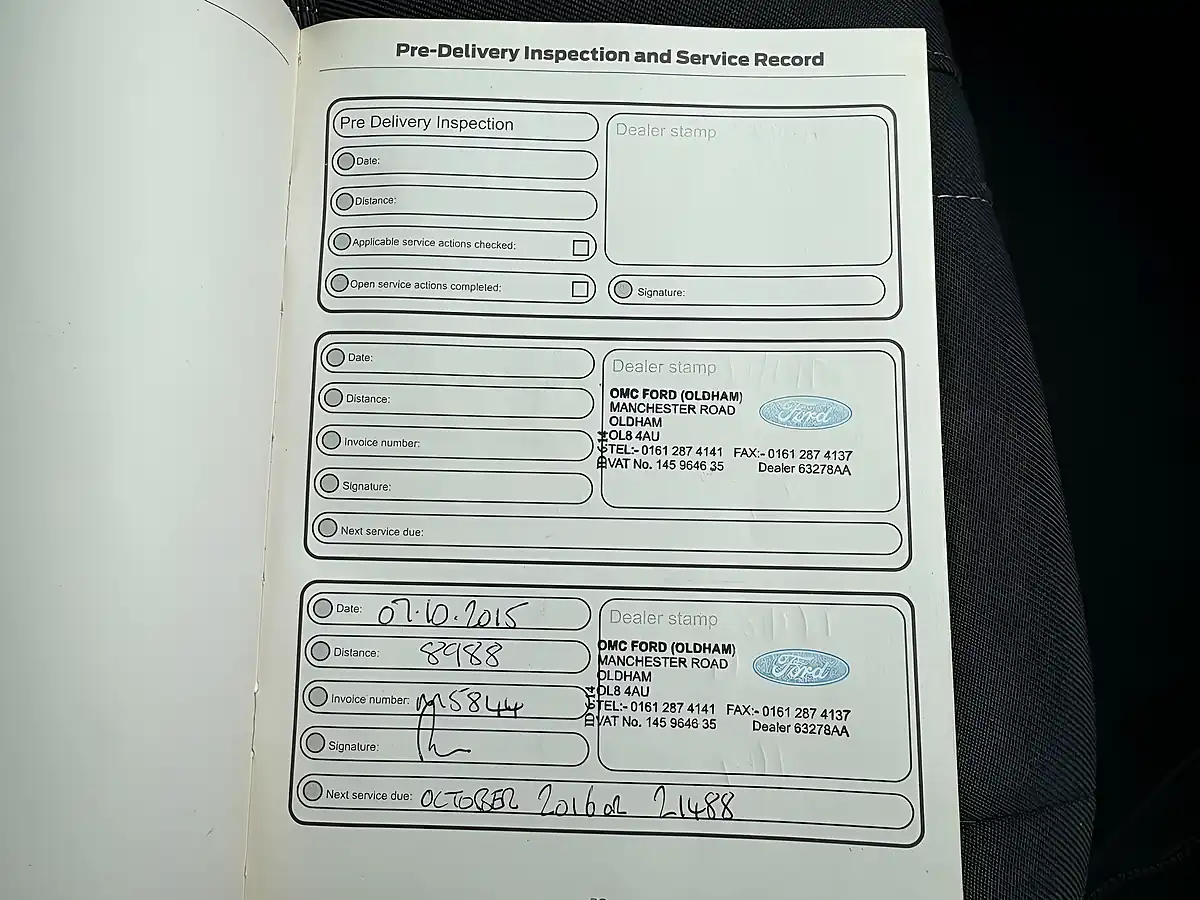 Pre-Delivery Inspection and Service Record
Pre Delivery Inspection
Date:
Distance:
Applicable service actions checked:
Open service actions completed:
Dealer stamp
Signature:
Date:
Distance:
Invoice number:
Signature:
Next service due:
Dealer stamp
OMC FORD (OLDHAM)
MANCHESTER ROAD
OLDHAM
OL8 4AU
TEL:- 0161 287 4141 FAX:- 0161 287 4137
VAT No. 145 9646 35 Dealer 63278AA
Ford
Date: 07.10.2015
Distance: 8988
Invoice number: M5844
Signature:
Next service due: OCTOBER 2016 or 21488
Dealer stamp
OMC FORD (OLDHAM)
MANCHESTER ROAD
OLDHAM
OL8 4AU
TEL:- 0161 287 4141 FAX:- 0161 287 4137
VAT No. 145 9646 35 Dealer 63278AA
Ford